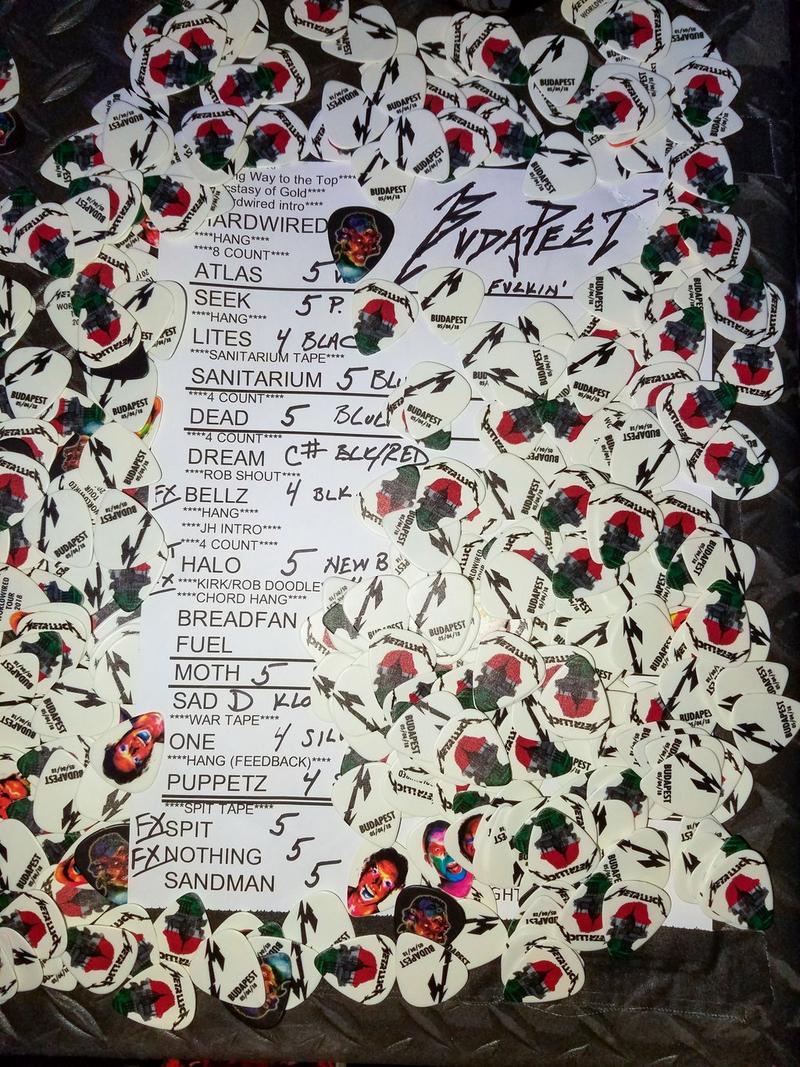 ng Way to the Top****
cstasy of Gold****
dwired intro****
HARDWIRED
BUDAPEST
****HANG****
****8 COUNT****
ATLAS 5
FUCKIN'
SEEK 5 P.
****HANG****
LITES 4 BLAC
****SANITARIUM TAPE****
SANITARIUM 5 BL
****4 COUNT****
DEAD 5 BLUE
****4 COUNT****
DREAM C# BLK/RED
****ROB SHOUT****
FX BELLZ 4 BLK
****HANG****
****JH INTRO****
****4 COUNT****
HALO 5 NEW B
****KIRK/ROB DOODLE
****CHORD HANG****
BREADFAN
FUEL
MOTH 5
SAD D KLO
****WAR TAPE****
ONE 4 SIL
****HANG (FEEDBACK)****
PUPPETZ 4
****SPIT TAPE****
FX SPIT 5
FX NOTHING 5
SANDMAN 5
GHT
METALLICA
BUDAPEST
05/04/18
WORLDWIRED
TOUR
2018